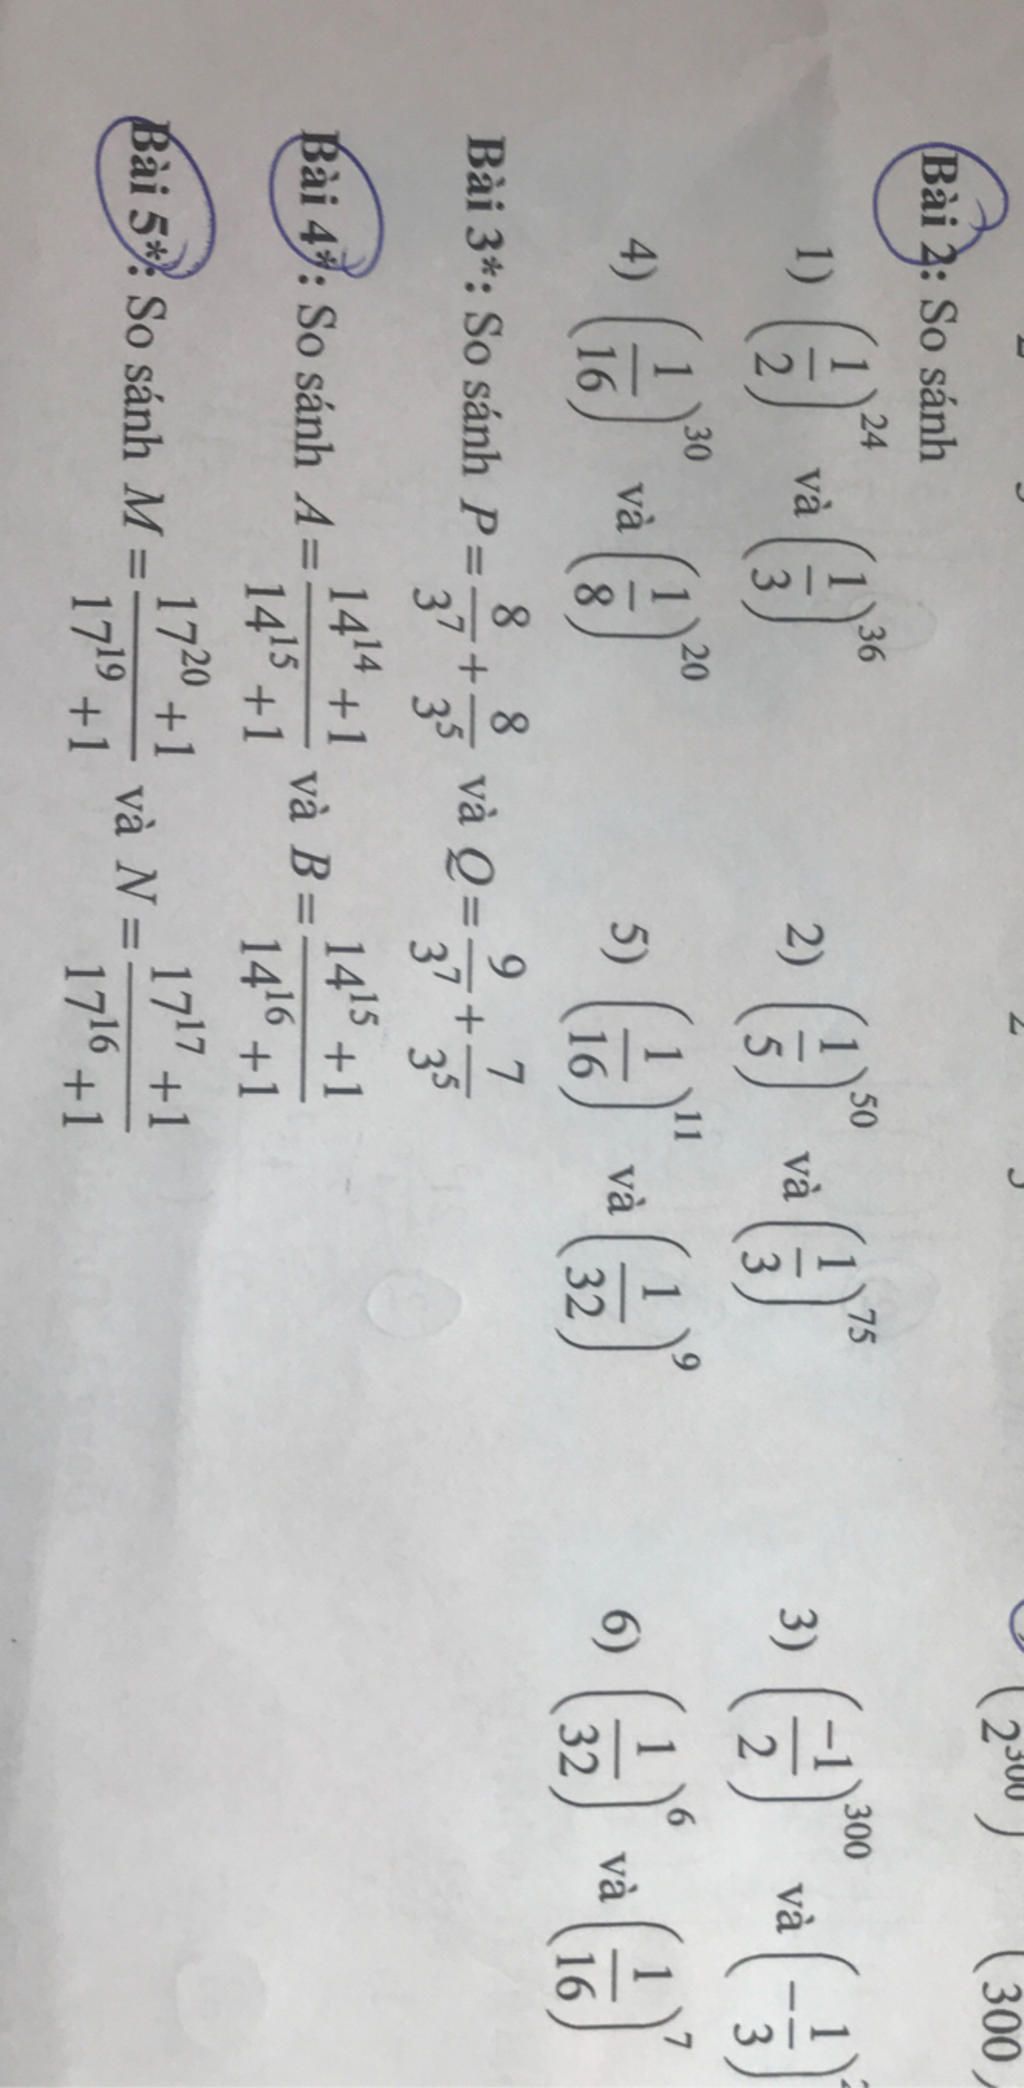 Bài 2: So sánh
1) (1/2)^24 và (1/3)^36 2) (1/5)^50 và (1/3)^75 3) (-1/2)^300 và (-1/3)
4) (1/16)^30 và (1/8)^20 5) (1/16)^11 và (1/32)^9 6) (1/32)^6 và (1/16)^7
Bài 3*: So sánh P = 8/3^7 + 8/3^5 và Q = 9/3^7 + 7/3^5
Bài 4*: So sánh A = (14^14 + 1)/(14^15 + 1) và B = (14^15 + 1)/(14^16 + 1)
Bài 5*: So sánh M = (17^20 + 1)/(17^19 + 1) và N = (17^17 + 1)/(17^16 + 1)